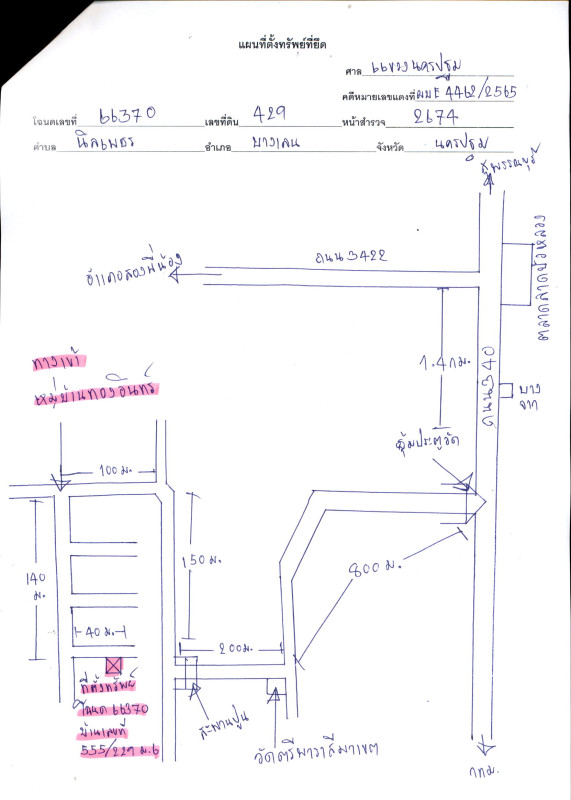 แผนที่ตั้งทรัพย์ที่ยึด
ศาล แขวงนครปฐม
คดีหมายเลขแดงที่ ผบE 4462/2565
โฉนดเลขที่ 66370 เลขที่ดิน 429 หน้าสำรวจ 2674
ตำบล นิลเพชร อำเภอ บางเลน จังหวัด นครปฐม
สุพรรณบุรี
ถนน 3422
อำเภอสองพี่น้อง
ตลาดลาดบัวหลวง
ทางเข้า
หมู่บ้านทองอินทร์
1.4 กม.
ถนน 340
บาง
จาก
ซุ้มประตูวัด
100 ม.
150 ม.
800 ม.
140
ม.
40 ม.
200 ม.
ที่ตั้งทรัพย์
โฉนด 66370
บ้านเลขที่
555/229 ม.6
สะพานปูน
วัดตรีพาราสีมาเขต
กทม.